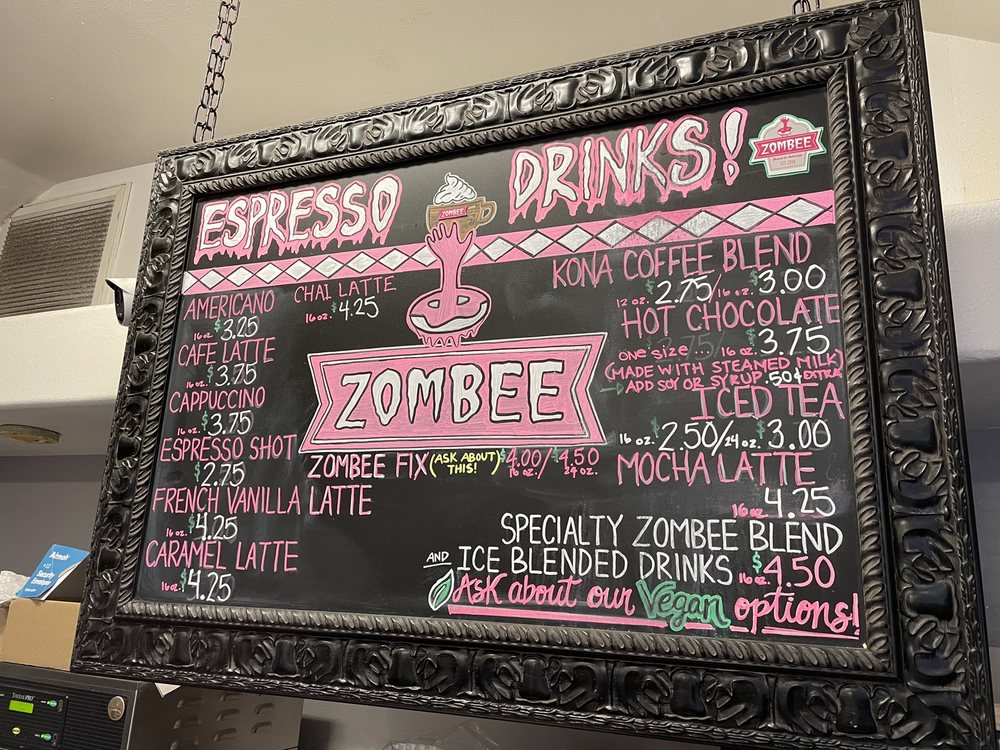 ESPRESSO DRINKS!
ZOMBEE
ZOMBEE
AMERICANO
16 oz. $3.25
CAFE LATTE
16 oz. $3.75
CAPPUCCINO
16 oz. $3.75
ESPRESSO SHOT
$2.75
FRENCH VANILLA LATTE
16 oz. $4.25
CARAMEL LATTE
16 oz. $4.25
CHAI LATTE
16 oz. $4.25
ZOMBEE
ZOMBEE FIX (ASK ABOUT THIS!) $4.00/$4.50
16 oz. 24 oz.
KONA COFFEE BLEND
12 oz. $2.75/16 oz. $3.00
HOT CHOCOLATE
ONE SIZE... 16 oz. $3.75
(MADE WITH STEAMED MILK)
ADD SOY OR SYRUP .50¢ EXTRA
ICED TEA
16 oz. $2.50/24 oz. $3.00
MOCHA LATTE
16 oz. 4.25
SPECIALTY ZOMBEE BLEND
AND ICE BLENDED DRINKS 16 oz. $4.50
ASK about our Vegan options!
Security
Envelopes